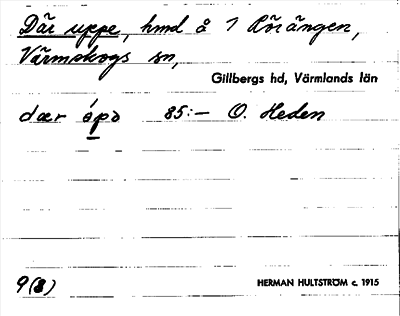 Där uppe, hmd å 1 Rörängen,
Värmskogs sn,
Gillbergs hd, Värmlands län
dær ópə 85:— O. Heden
9(8) HERMAN HULTSTRÖM c. 1915